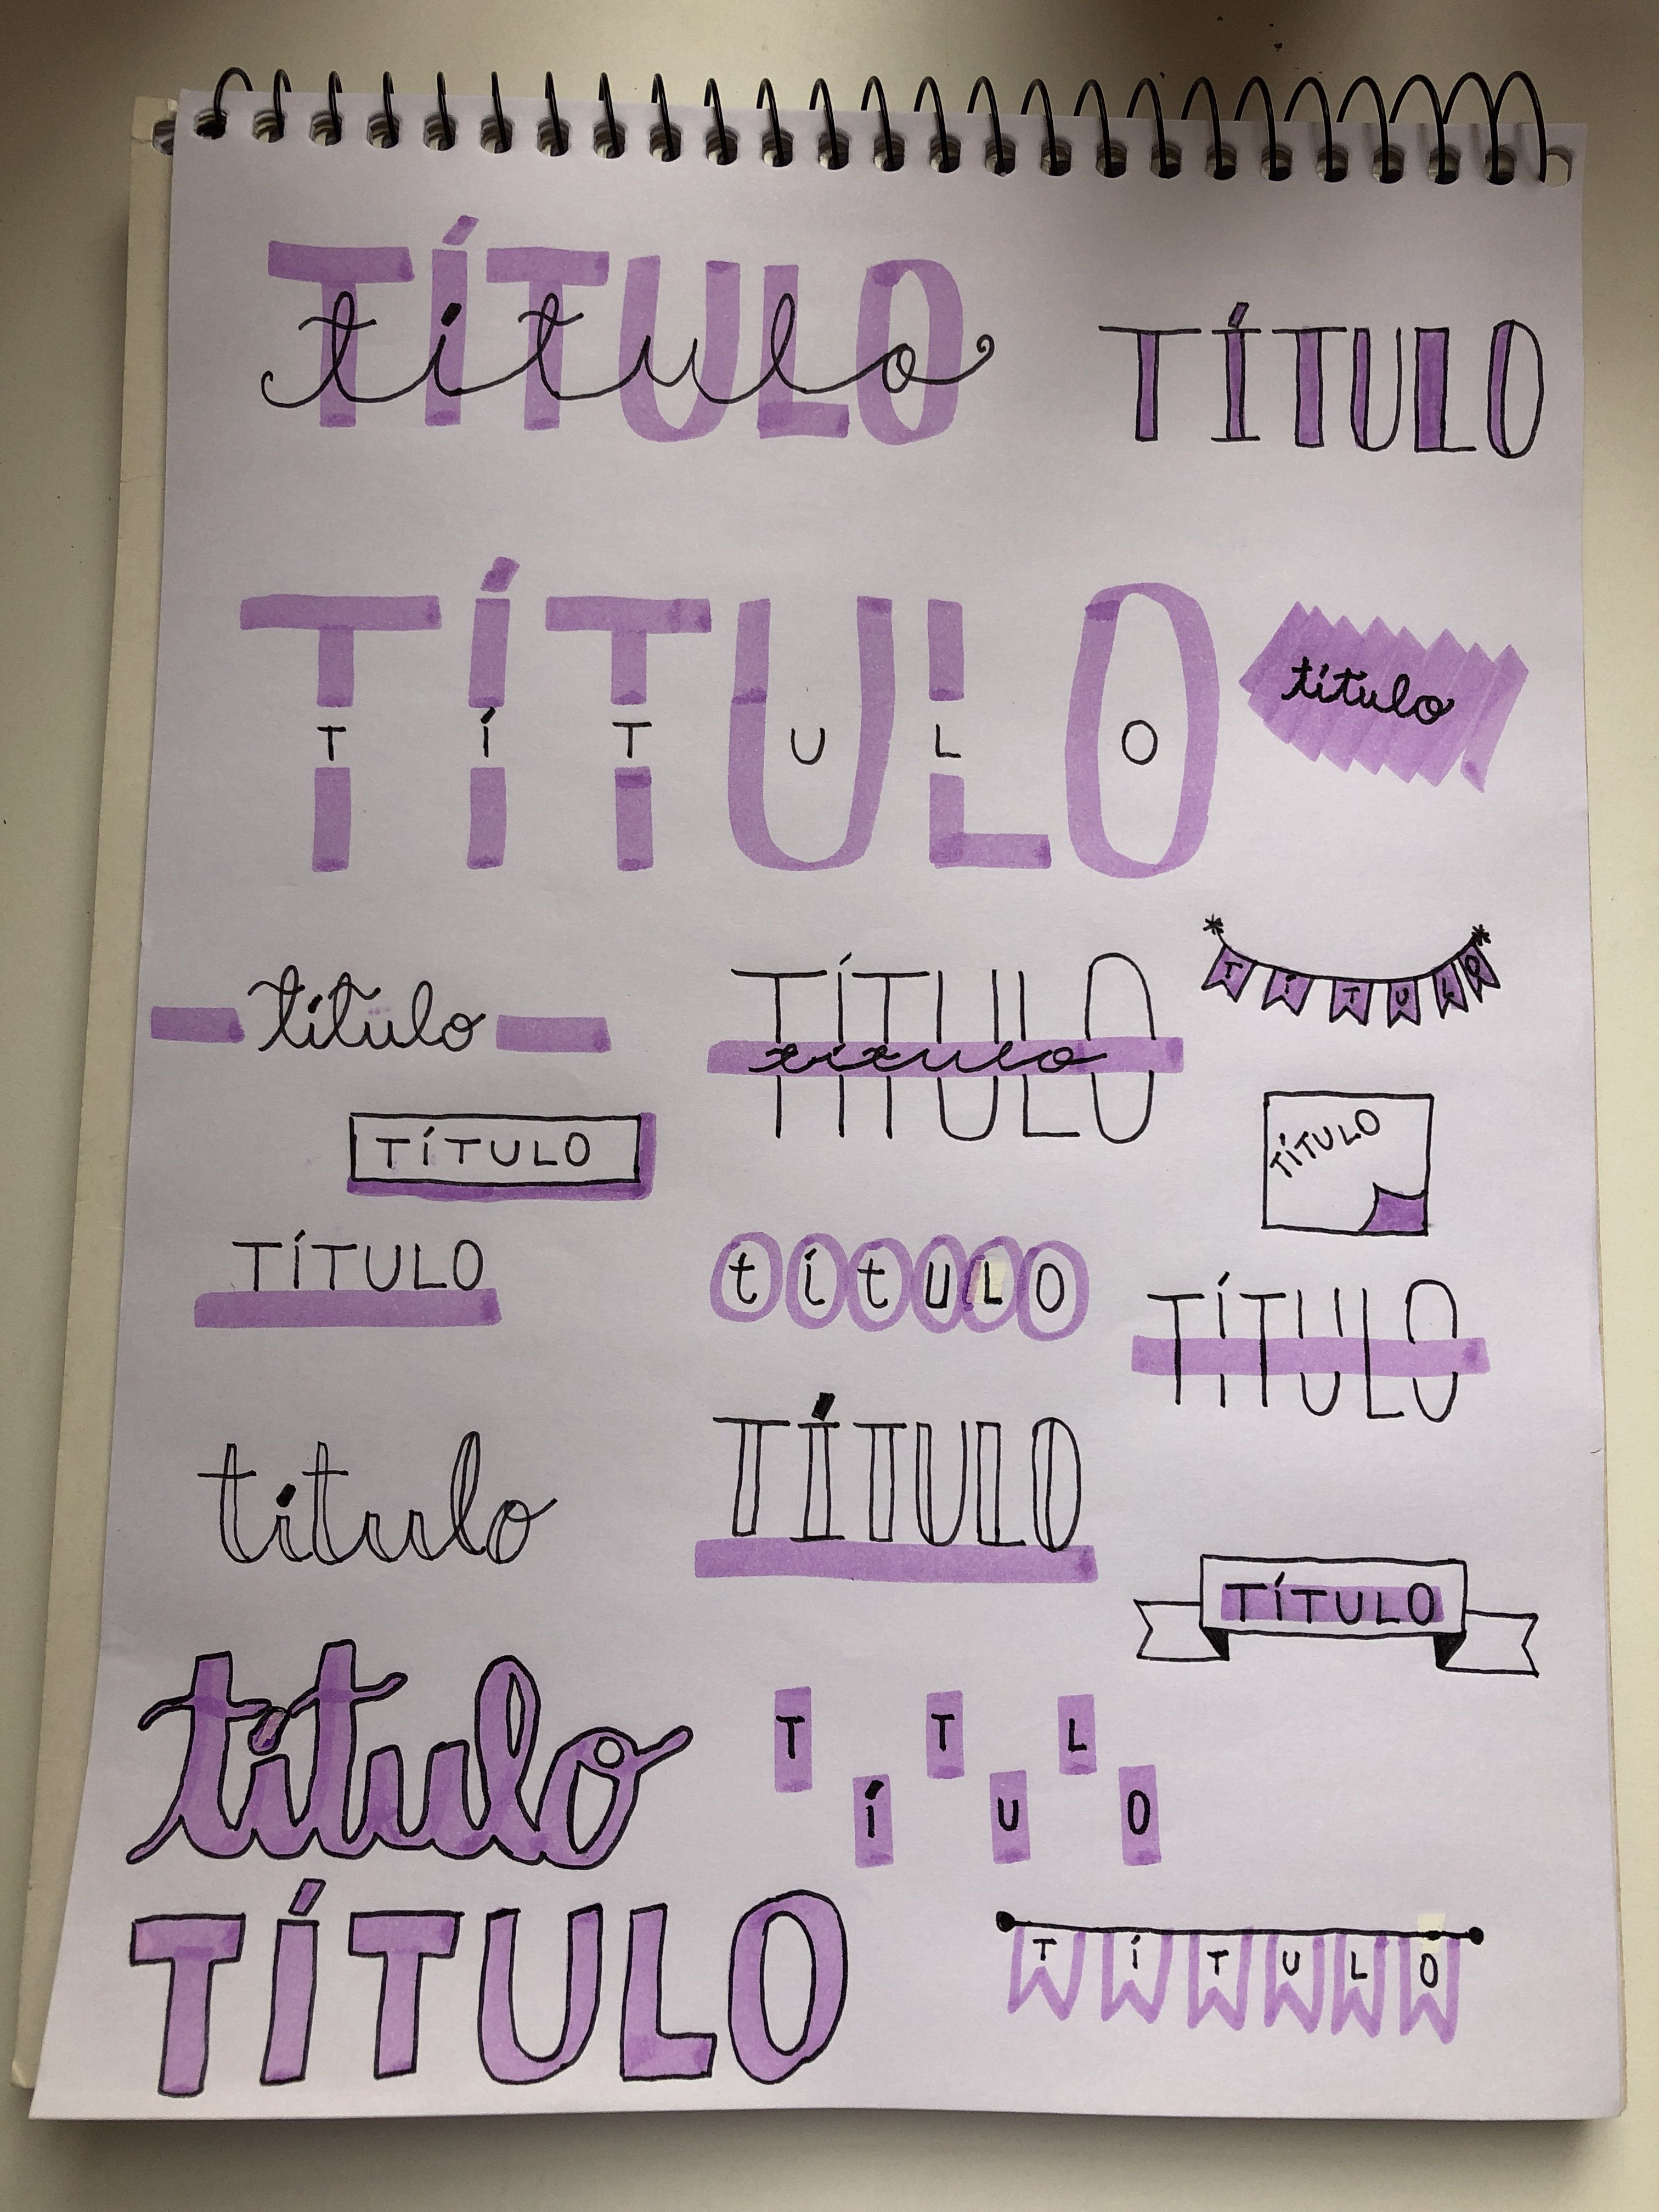 TÍTULO
título
TÍTULO
TÍTULO
T Í T U L O
título
título
TÍTULO
título
TÍTULO
TÍTULO
TÍTULO
TÍTULO
títULO
TÍTULO
título
TÍTULO
TÍTULO
título
TÍTULO
TÍTULO
TÍTULO